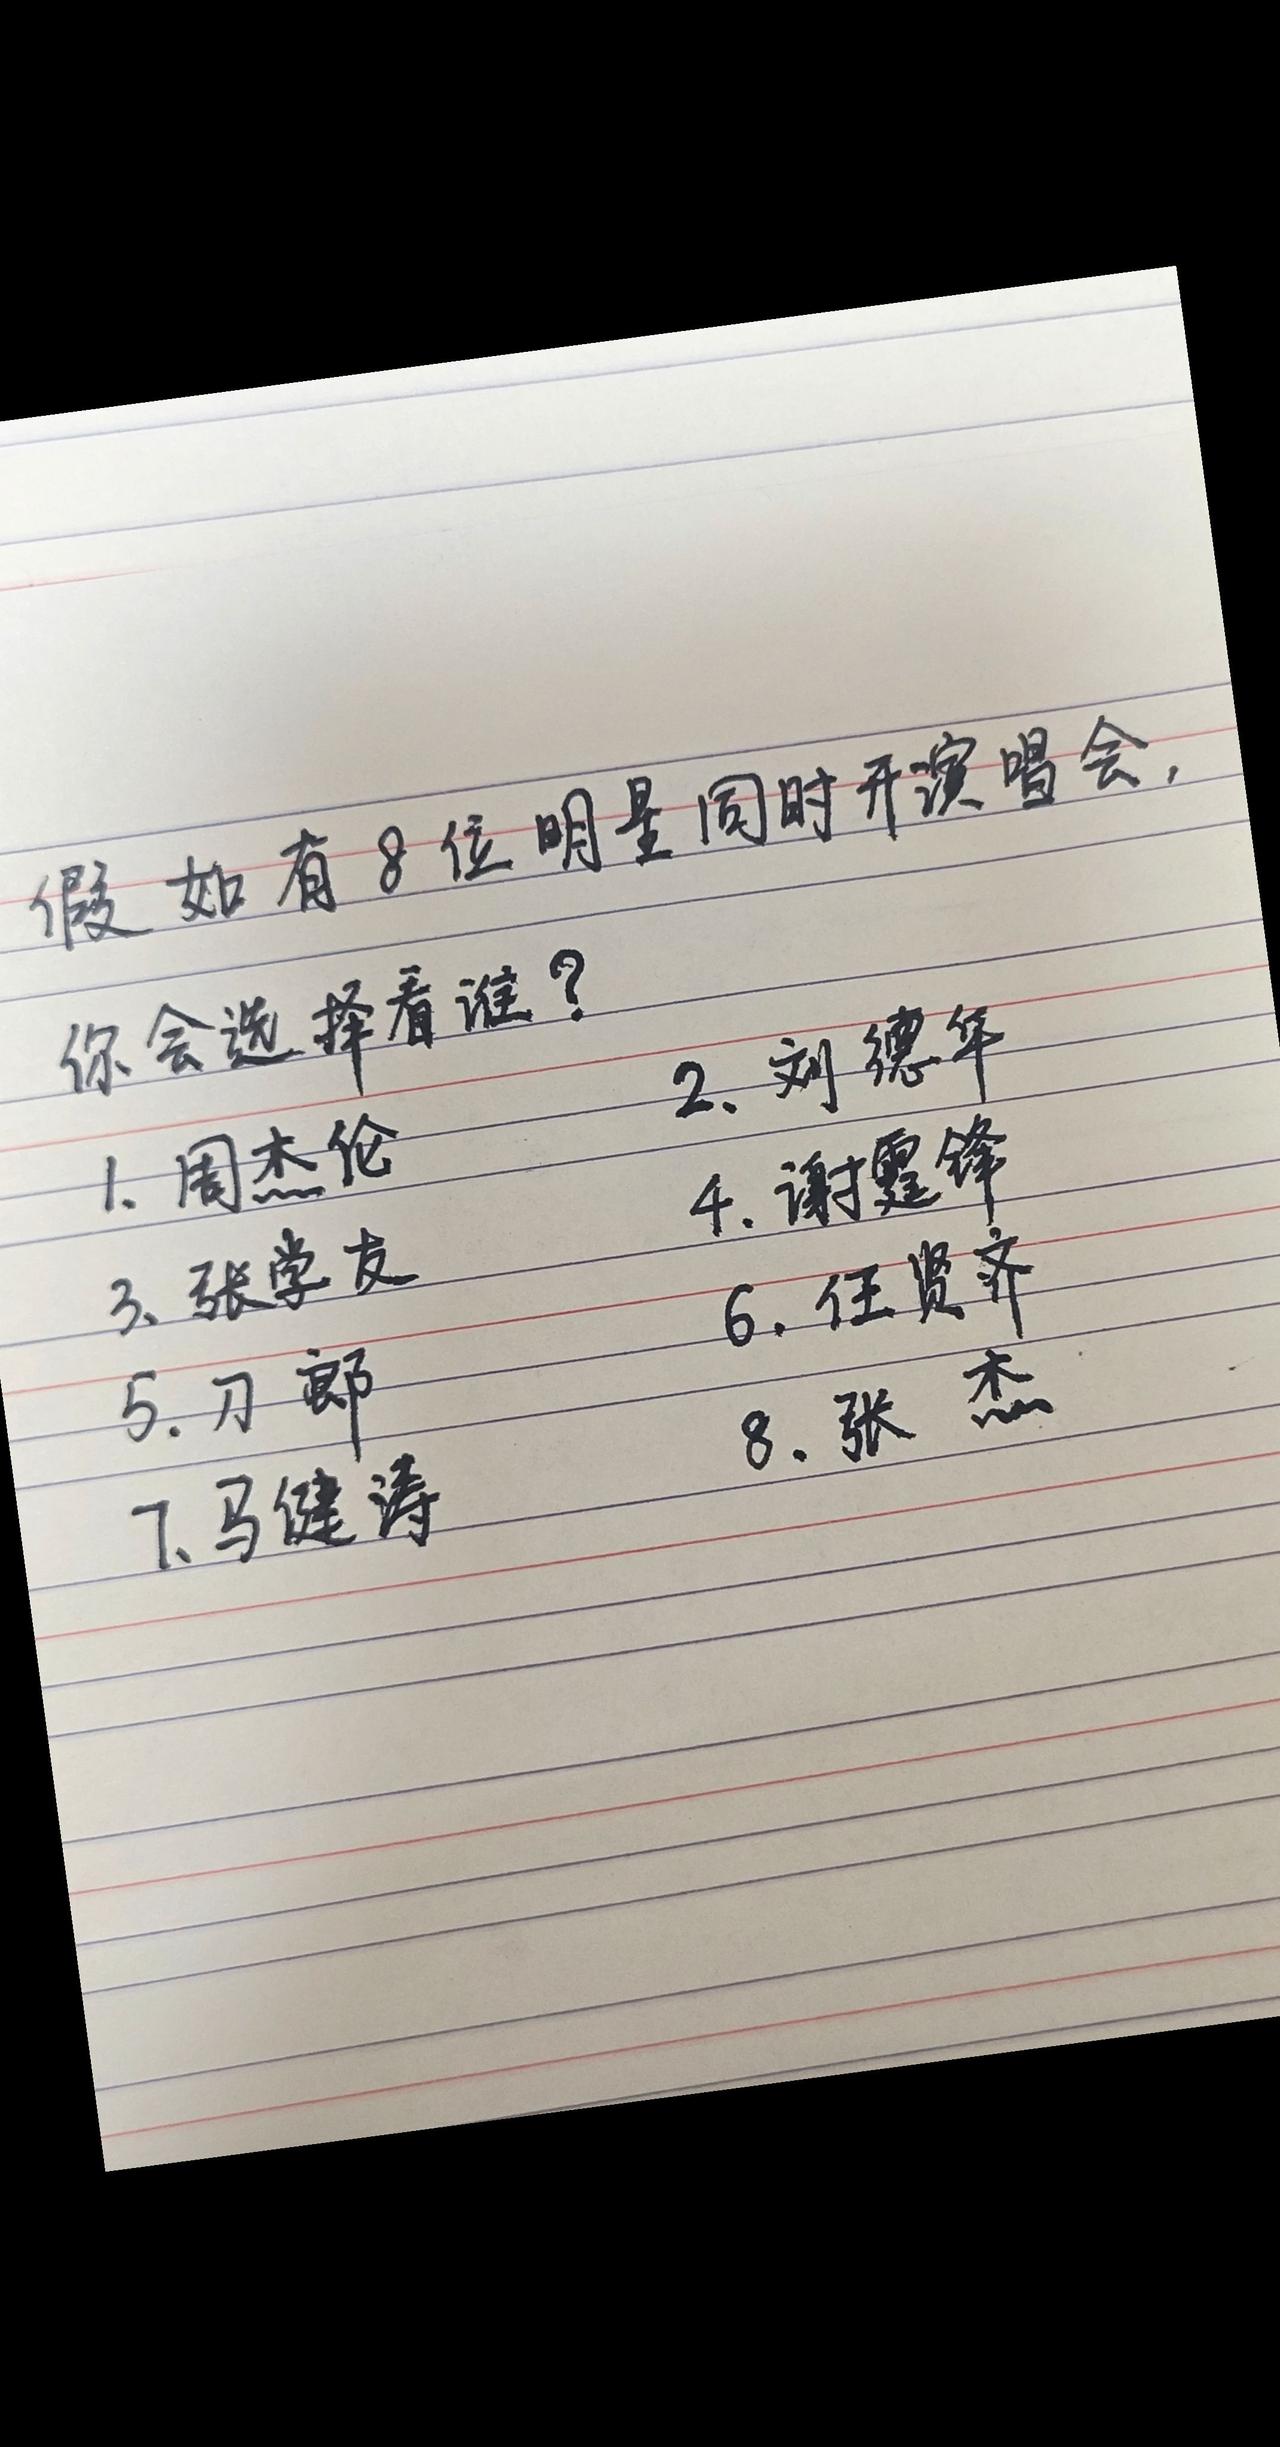 假如有8位明星同时开演唱会，
你会选择看谁？
1. 周杰伦 2. 刘德华
3. 张学友 4. 谢霆锋
5. 刀郎 6. 任贤齐
7. 马健涛 8. 张杰